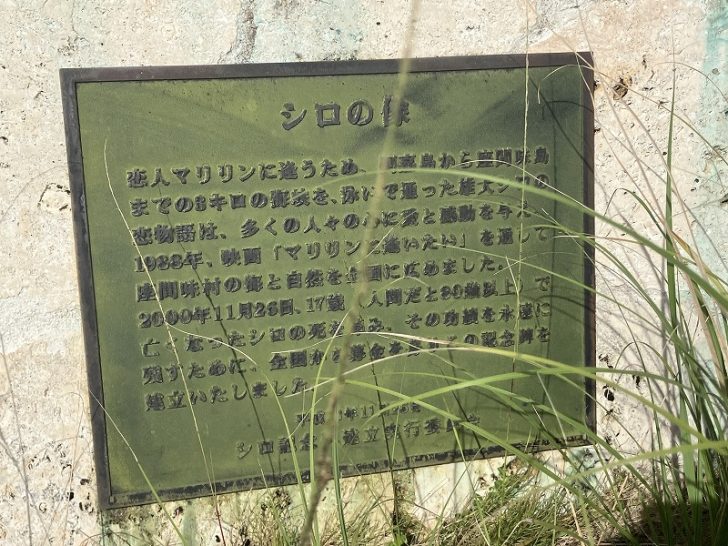 シロの像
恋人マリリンに逢うため、阿嘉島から座間味島
までの3キロの海峡を、泳いで通った雄犬シロの
恋物語は、多くの人々の心に愛と感動を与え
1988年、映画「マリリンに逢いたい」を通して
座間味村の海と自然を全国に広めました。
2000年11月26日、17歳(人間だと90歳以上)で
亡くなったシロの死を み、その功績を永遠に
残すために、全国から募金を この記念碑を
建立いたしました。
平成 年11月 日
シロ記念 建立実行委員会